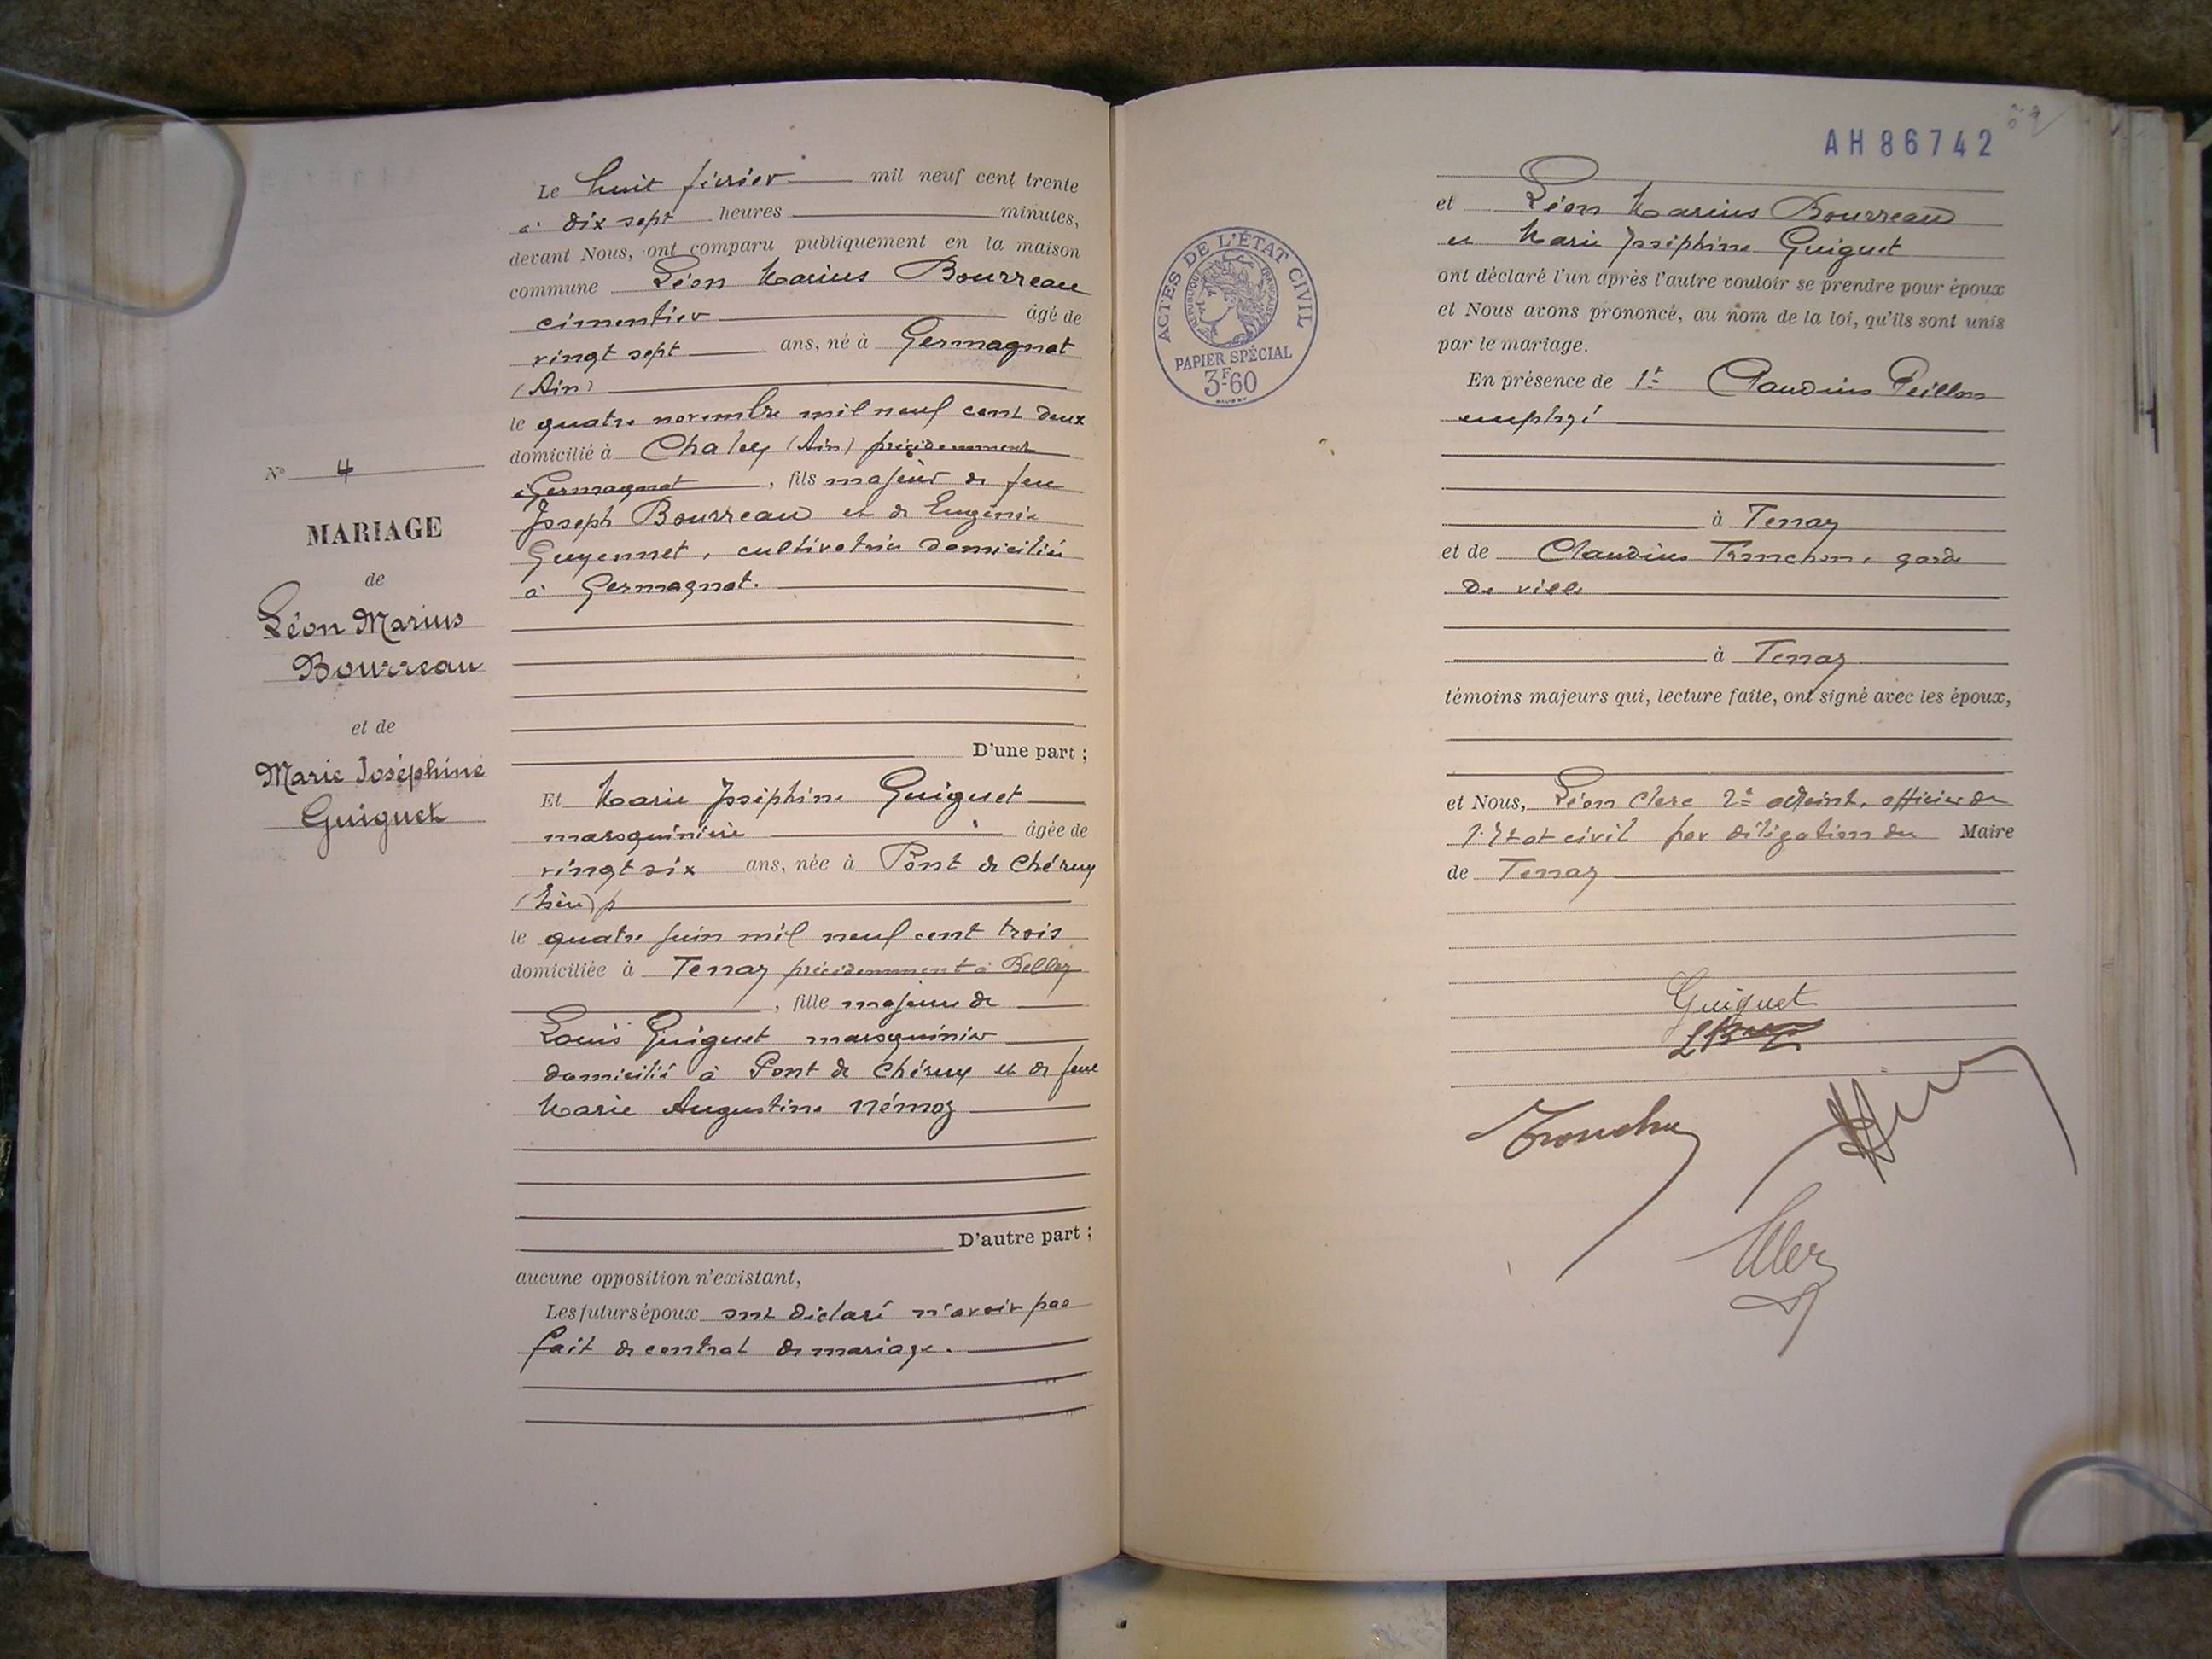 N° 4
MARIAGE
de
Léon Marius
Bourreau
et de
Marie Joséphine
Guiguet
Le huit février mil neuf cent trente
à dix sept heures minutes,
devant Nous, ont comparu publiquement en la maison
commune Léon Marius Bourreau
cimentier âgé de
vingt sept ans, né à Germagnat
(Ain)
le quatre novembre mil neuf cent deux
domicilié à Chaley (Ain) précédemment
à Germagnat, fils majeur de feu
Joseph Bourreau et de Eugénie
Guyennet, cultivatrice domiciliée
à Germagnat.
D'une part ;
Et Marie Joséphine Guiguet
maroquinière âgée de
vingt six ans, née à Pont de Chéruy
(Isère)
le quatre juin mil neuf cent trois
domiciliée à Tenay précédemment à Belley
, fille majeure de
Louis Guiguet maroquinier
domicilié à Pont de Chéruy et de feue
Marie Augustine Némoz
D'autre part ;
aucune opposition n'existant,
Les futurs époux ont déclaré n'avoir pas
fait de contrat de mariage.
AH 86742
ACTES DE L'ÉTAT CIVIL
RÉPUBLIQUE FRANÇAISE
PAPIER SPÉCIAL
3F60
et Léon Marius Bourreau
et Marie Joséphine Guiguet
ont déclaré l'un après l'autre vouloir se prendre pour époux
et Nous avons prononcé, au nom de la loi, qu'ils sont unis
par le mariage.
En présence de 1° Claudius Peillon
employé
à Tenay
et de Claudius Tronchon, garde
de ville
à Tenay
témoins majeurs qui, lecture faite, ont signé avec les époux,
et Nous, Léon Clerc 2e adjoint, officier de
l'Etat civil par délégation du Maire
de Tenay
Guiguet